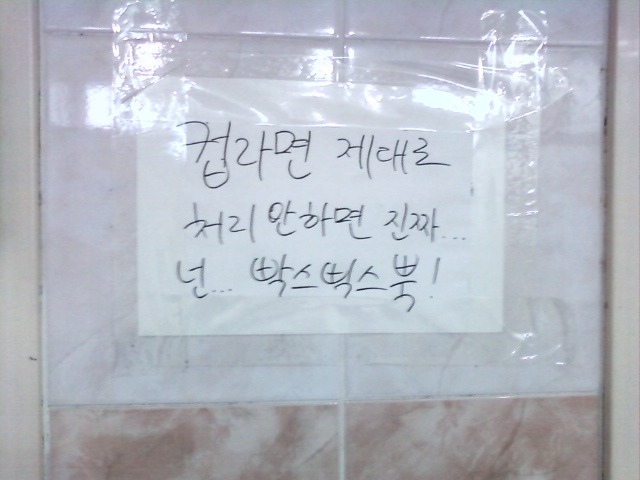 컵라면 제대로
처리 안하면 진짜...
넌... 빡스빅스뿍!